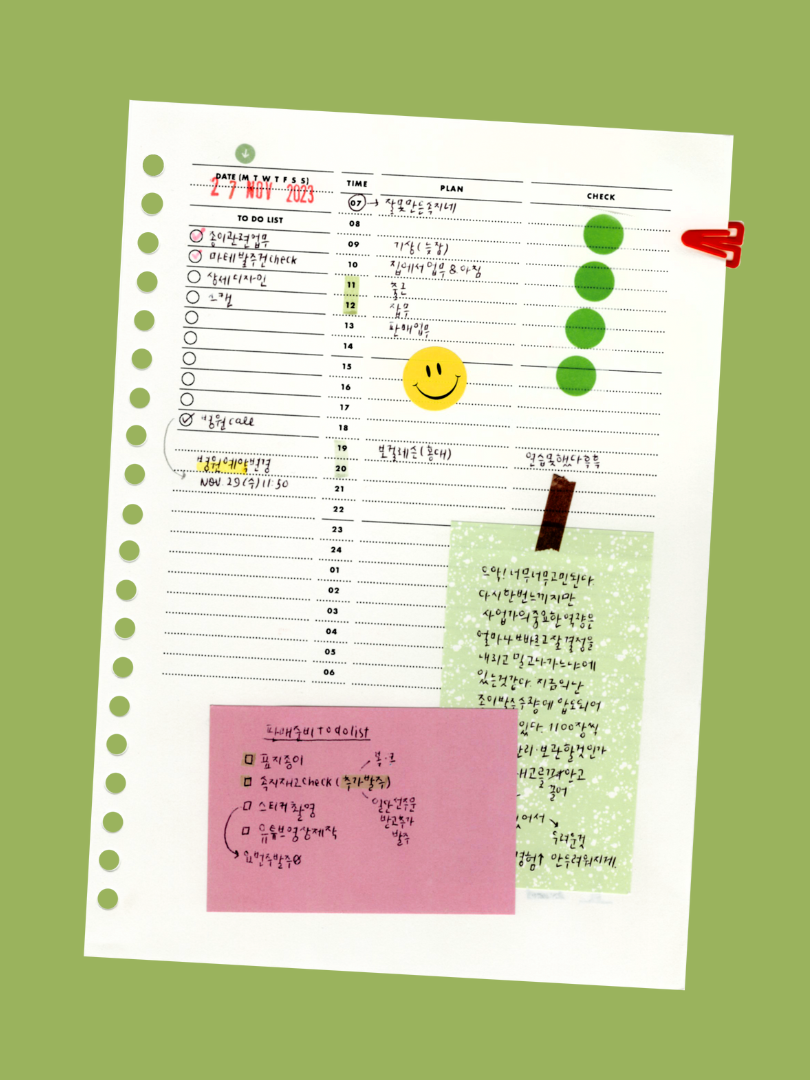 DATE (M T W T F S S)
27 NOV 2023
TIME
PLAN
CHECK
TO DO LIST
종이관련업무
마테발주건check
상세디자인
스캔
병원call
병원예약변경
NOV 29(수)11:30
07 → 잘못만든속지네
08
09 기상(늦잠)
10 집에서업무&아침
11 출근
12 업무
13 판매업무
14
15
16
17
18
19 보컬레슨(홍대) 연습못했다흑흑
20
21
22
23
24
01
02
03
04
05
06
으악! 너무너무고민된다
다시한번느끼지만
사업가의중요한역량은
얼마나빠르고잘결정을
내리고밀고나가느냐에
있는것같다. 지금의난
종이발주수량에 압도되어
있다. 1100장씩
관리·보관할것인가
재고를껴안고
끌어
있어서
두려운것
경험↑ 안두려워지게.
판매준비todolist
표지종이
속지재고check(추가발주)
스티커촬영
유튜브영상제작
요번주발주
일단선주문
받고추가
발주